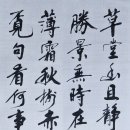 草堂幽且静
勝景無時在
薄霜秋樹疏
覓句看何事